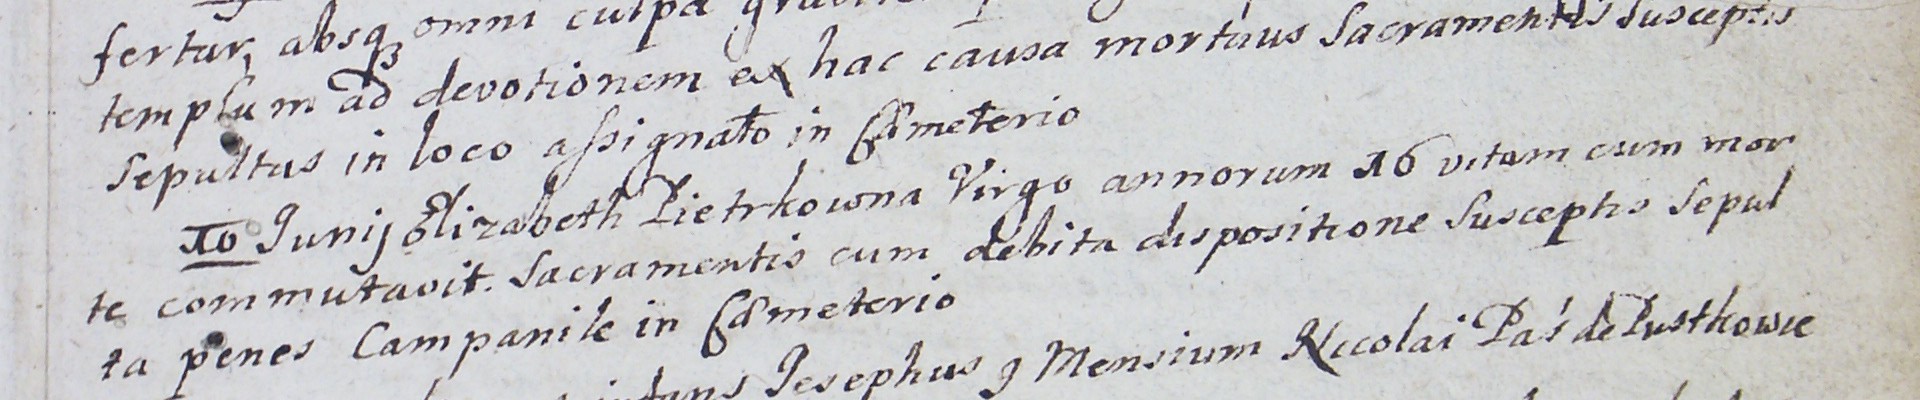 fertur, absq3 omni culpa
templum ad devotionem ex hac causa mortuus Sacramentis Susceptis
Sepultus in loco assignato in Cæmeterio
10 Junij Elizabeth Pietrkowna Virgo annorum 16 vitam cum mor
te commutavit. Sacramentis cum debita dispositione Susceptis Sepul
ta penes Campanile in Cæmeterio
Josephus 9 Mensium Nicolai Paś de Pustkowie